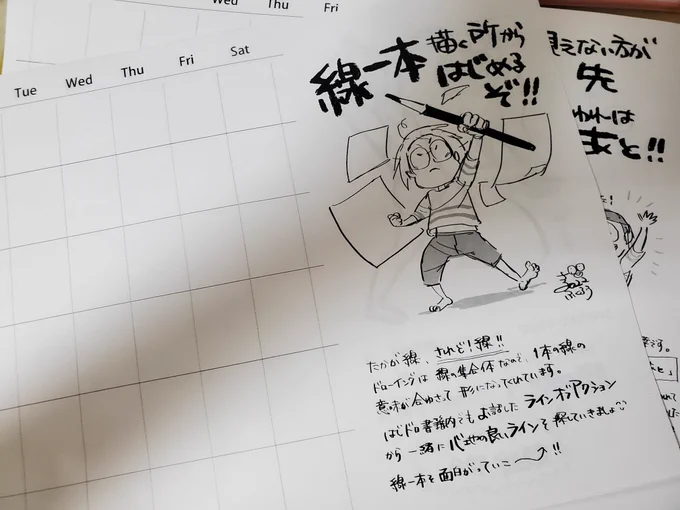 Wed Thu Fri
Tue Wed Thu Fri Sat
線一本 描く所から
はじめる
ぞ!!
見えない方が
先
われは
あと!!
たかが線、されど!線!!
ドローイングは線の集合体なので、1本の線の
意味が合わさって形になってくれています。
はじドロ書籍内でもお話した ラインオブアクション
から一緒に心地の良いラインを探していきましょう
線一本を面白がっていこー!!